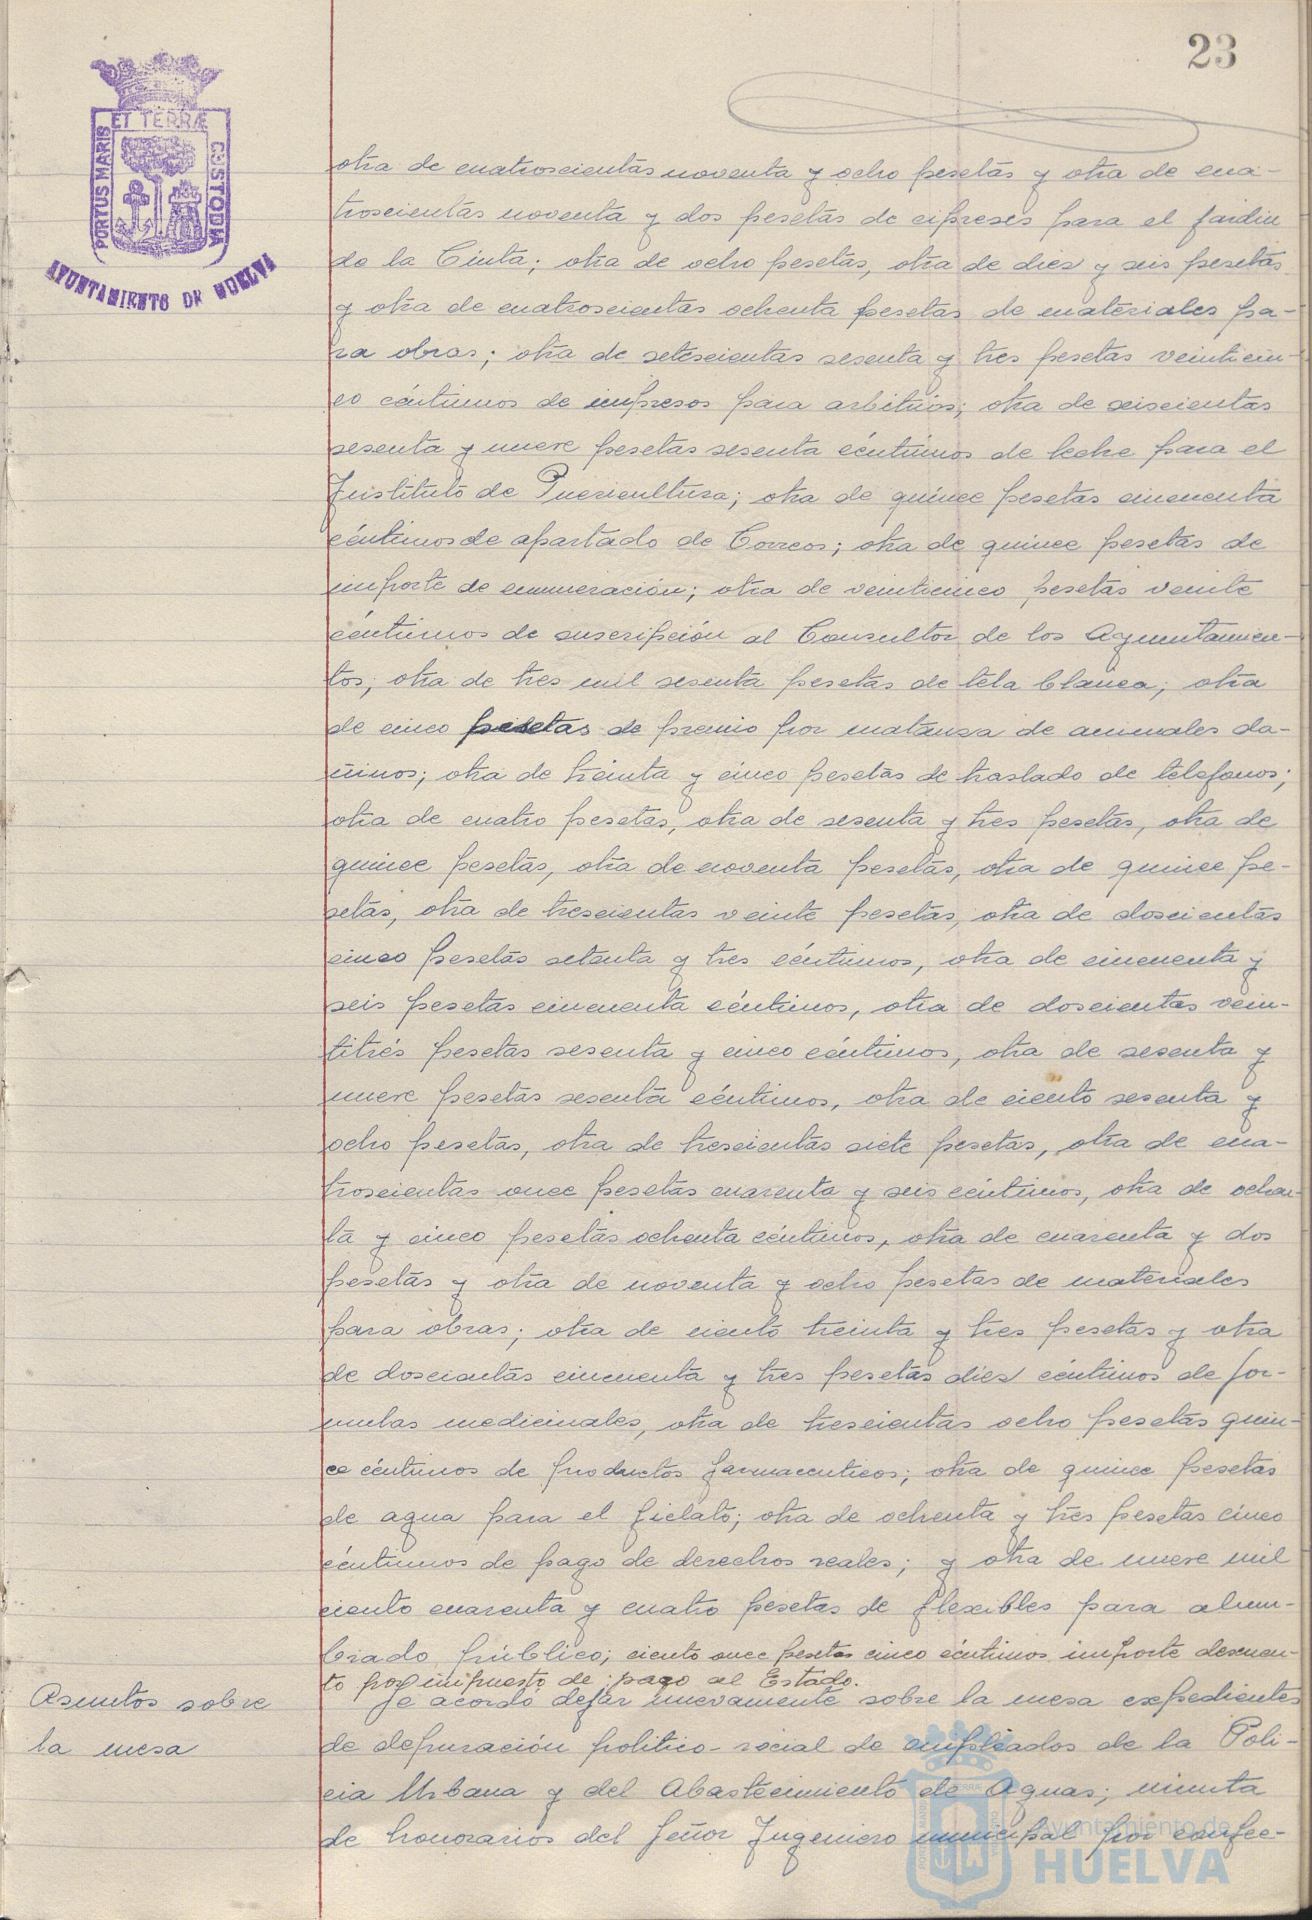 23
PORTUS MARIS ET TERRÆ CUSTODIA
AYUNTAMIENTO DE HUELVA
otra de cuatroscientas noventa y ocho pesetas y otra de cua-
troscientas noventa y dos pesetas de cipreses para el jardin
de la Cinta; otra de ocho pesetas, otra de diez y seis pesetas
y otra de cuatroscientas ochenta pesetas de materiales pa-
ra obras; otra de setescientas sesenta y tres pesetas veinticin-
co céntimos de impresos para arbitrios; otra de seiscientas
sesenta y nueve pesetas sesenta céntimos de leche para el
Instituto de Puericultura; otra de quince pesetas cincuenta
céntimos de apartado de Correos; otra de quince pesetas de
importe de enumeración; otra de veinticinco pesetas veinte
céntimos de suscripción al Consultor de los Ayuntamien-
tos; otra de tres mil sesenta pesetas de tela blanca; otra
de cinco pesetas de premio por matanza de animales da-
ñinos; otra de treinta y cinco pesetas de traslado de telefonos;
otra de cuatro pesetas, otra de sesenta y tres pesetas, otra de
quince pesetas, otra de noventa pesetas, otra de quince pe-
setas, otra de trescientas veinte pesetas, otra de doscientas
cinco pesetas setenta y tres céntimos, otra de cincuenta y
seis pesetas cincuenta céntimos, otra de doscientas vein-
titrés pesetas sesenta y cinco céntimos, otra de sesenta y
nueve pesetas sesenta céntimos, otra de ciento sesenta y
ocho pesetas, otra de trescientas siete pesetas, otra de cua-
troscientas once pesetas cuarenta y seis céntimos, otra de ochen-
ta y cinco pesetas ochenta céntimos, otra de cuarenta y dos
pesetas y otra de noventa y ocho pesetas de materiales
para obras; otra de ciento treinta y tres pesetas y otra
de doscientas cincuenta y tres pesetas diez céntimos de for-
mulas medicinales, otra de trescientas ocho pesetas quin-
ce céntimos de productos farmaceuticos; otra de quince pesetas
de agua para el fielato; otra de ochenta y tres pesetas cinco
céntimos de pago de derechos reales; y otra de nueve mil
ciento cuarenta y cuatro pesetas de flexibles para alum-
brado público; ciento once pesetas cinco céntimos importe descuen-
to por impuesto de pago al Estado.
Asuntos sobre
la mesa
Se acordó dejar nuevamente sobre la mesa expedientes
de depuración politico-social de empleados de la Poli-
cia Urbana y del Abastecimiento de Aguas; minuta
de honorarios del Señor Ingeniero municipal por confec-
Ayuntamiento de
HUELVA